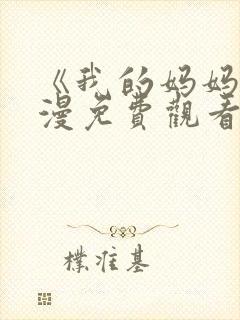 《我的妈妈
漫免費觀看
樸准基